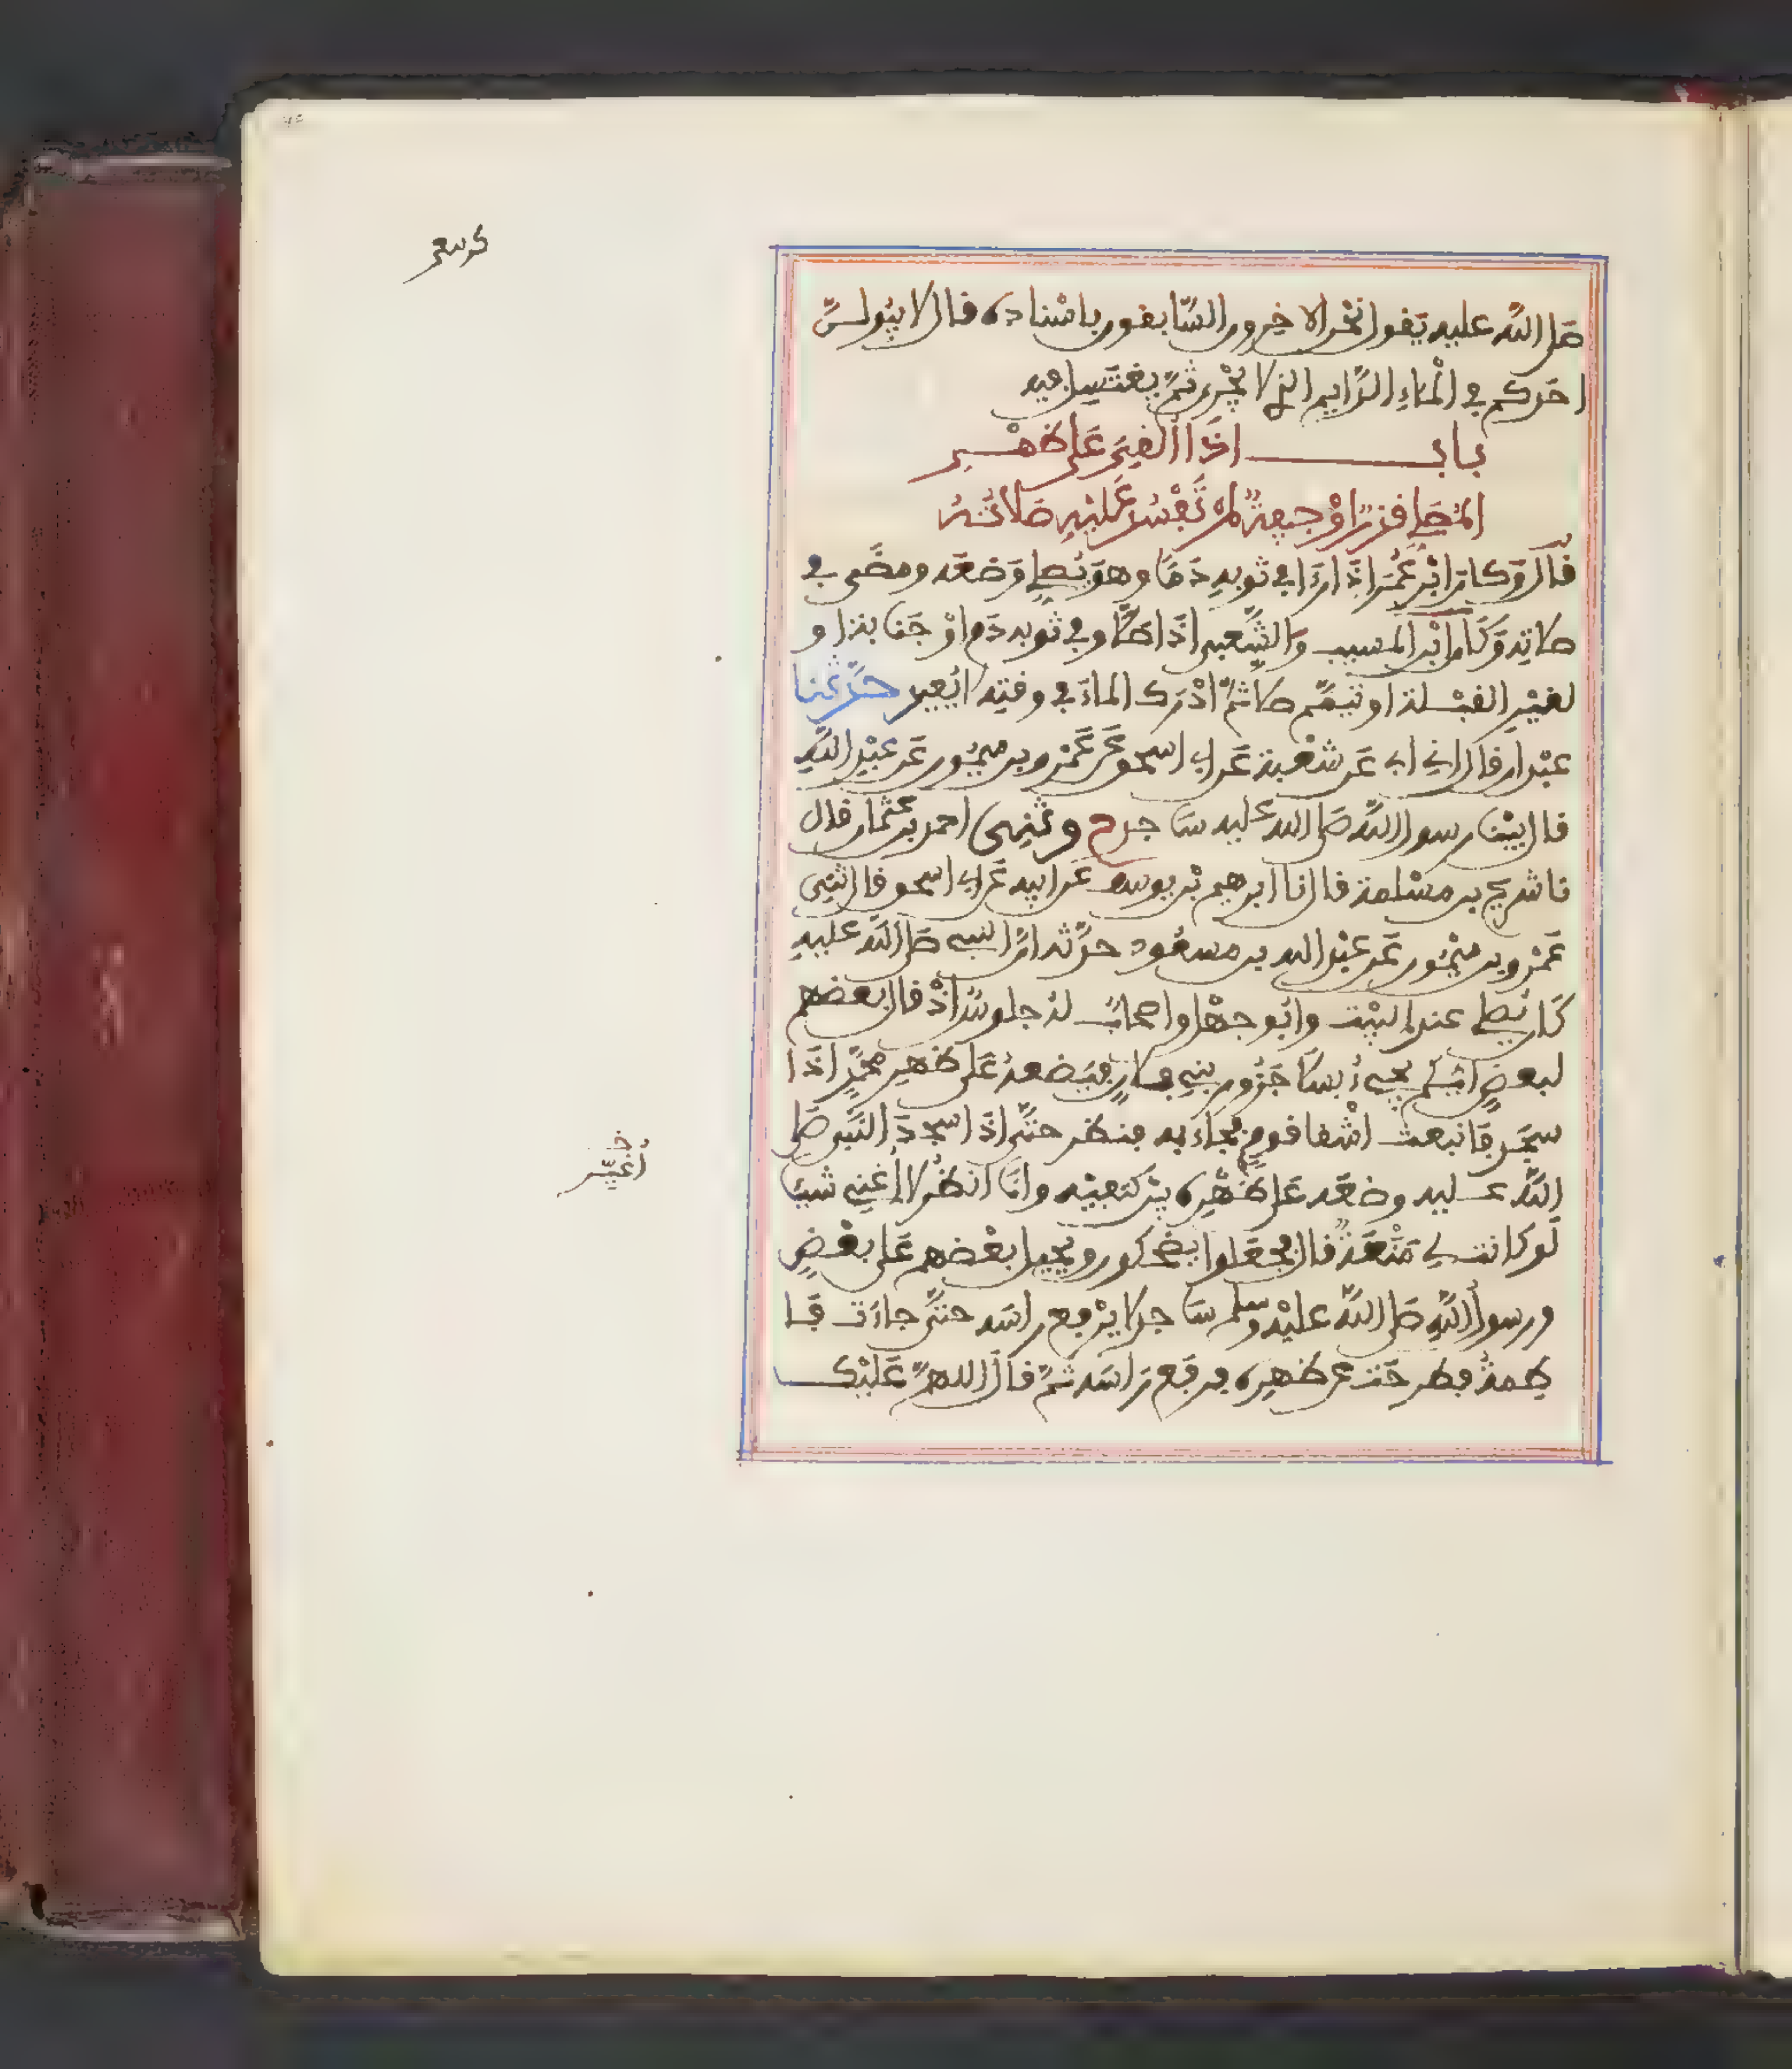 صلى الله عليه يقول نحن الاخرون السابقون باسناده قال لا يبولن
احدكم في الماء الدايم الذي لا يجري ثم يغتسل فيه
باب اذا القي على ظهر
المصلي قذر او جيفة لم تفسد عليه صلاته
قال وكان ابن عمر اذا راى في ثوبه دما وهو يصلي وضعه ومضى في
صلاته وقال ابن المسيب والشعبي اذا صلى وفي ثوبه دم او جنابة او
لغير القبلة او تيمم صلى ثم ادرك الماء في وقته لا يعيد حدثنا
عبدان قال اني ابي عن شعبة عن ابي اسحق عن عمرو بن ميمون عن عبد الله
قال بينا رسول الله صلى الله عليه ساجد ح وثنى احمد بن عثمان قال
نا شريح بن مسلمة قال نا ابرهيم بن يوسف عن ابيه عن ابي اسحق قال ثنى
عمرو بن ميمون عن عبد الله بن مسعود حدثه ان النبي صلى الله عليه
كان يصلي عند البيت وابو جهل واصحاب له جلوس اذ قال بعضهم
لبعض ايكم يجيء بسلا جزور بني فلان فيضعه على ظهر محمد اذا
سجد فانبعث اشقا قوم فجاء به فنظر حتى اذا سجد النبي صلى
الله عليه وضعه على ظهره بين كتفيه وانا انظر لا اغني شيئا
لو كانت لي منعة قال فجعلوا يضحكون ويحيل بعضهم على بعض
ورسول الله صلى الله عليه وسلم ساجد لا يرفع راسه حتى جاءت فا
طمة فطرحت عن ظهره فرفع راسه ثم قال اللهم عليك
أغيّر